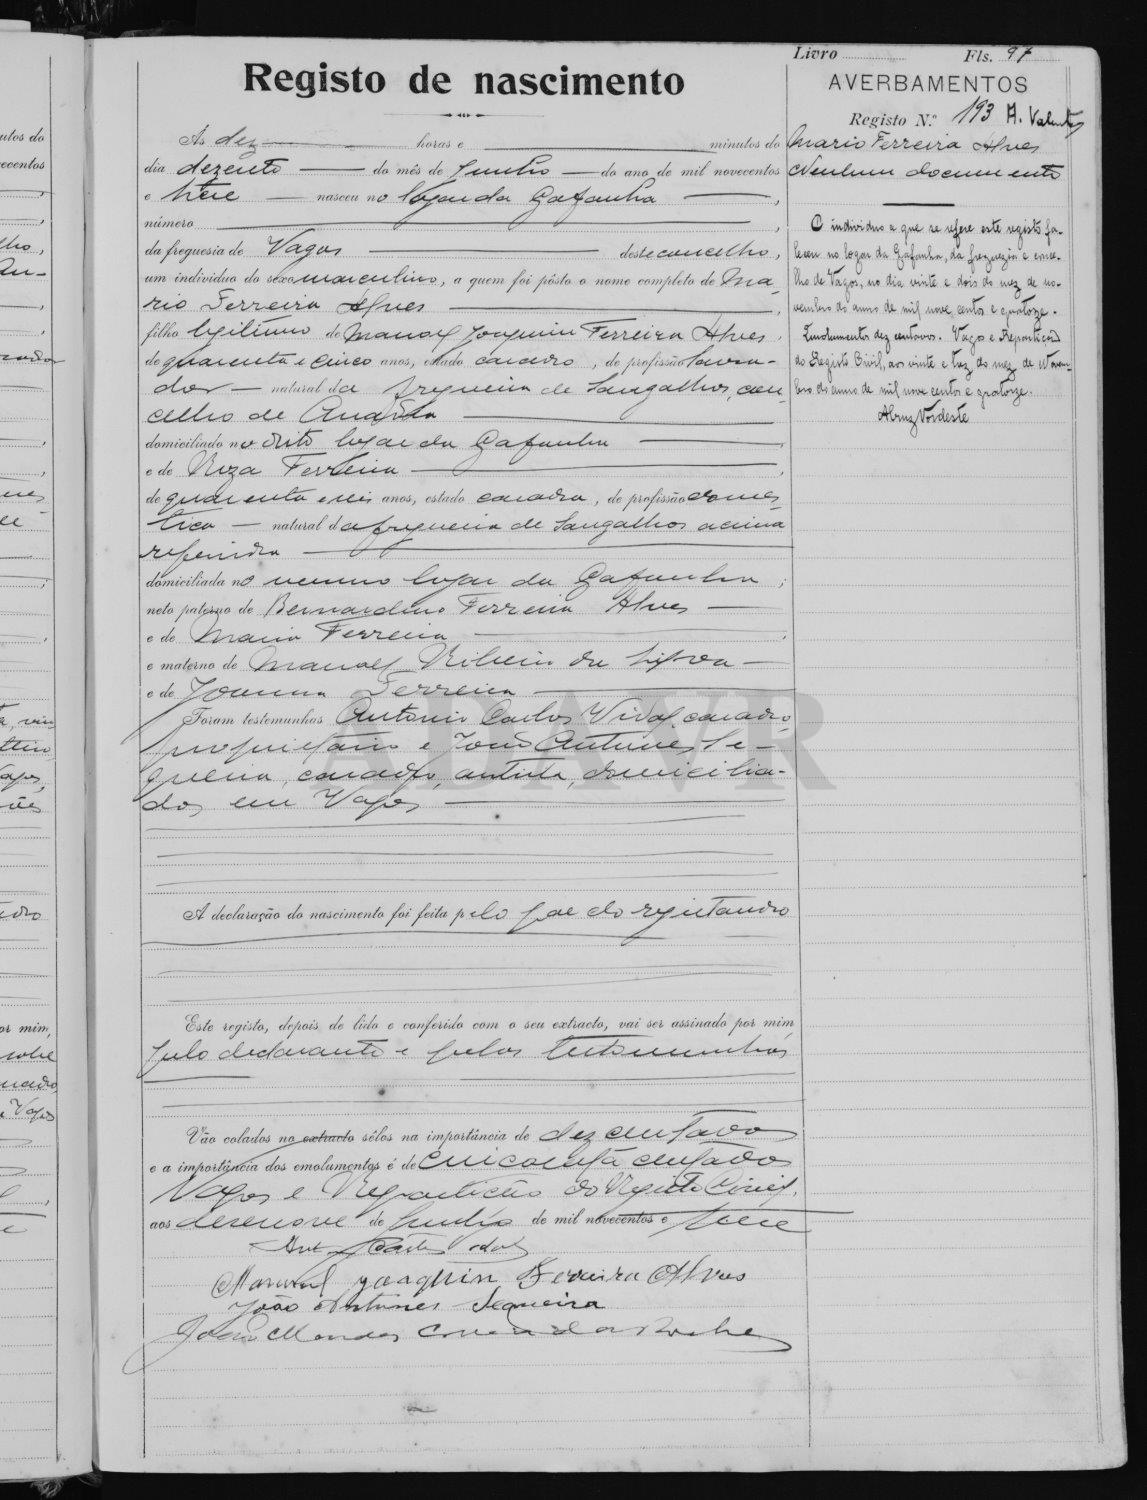 Livro Fls. 97
Registo de nascimento
AVERBAMENTOS
Registo N.º 193 A. Valente
Ás dez horas e minutos do
dia dezoito do mês de Junho do ano de mil novecentos
e treze nasceu no logar da Gafanha,
número,
da freguesia de Vagos deste concelho,
um individuo do sexo masculino, a quem foi pôsto o nome completo de Ma-
rio Ferreira Alves
filho legitimo de Manoel Joaquim Ferreira Alves,
de quarenta e cinco anos, estado casado, de profissão lavra-
dor natural da freguesia de Sangalhos, con-
celho de Anadia
domiciliado no dito logar da Gafanha
e de Roza Ferreira,
de quarenta e seis anos, estado casada, de profissão domes-
tica natural da freguesia de Sangalhos acima
referida
domiciliada no mesmo logar da Gafanha;
neto paterno de Bernardino Ferreira Alves
e de Maria Ferreira;
e materno de Manoel Ribeiro da Silva
e de Joanna Ferreira
Foram testemunhas Antonio Carlos Vidal, casado,
proprietario e João Antunes Se-
queira, casado, artista, domicilia-
dos em Vagos
ADAVR
A declaração do nascimento foi feita pelo pae do registando
Este registo, depois de lido e conferido com o seu extracto, vai ser assinado por mim
pelo declarante e pelas testemunhas
Vão colados no extracto sêlos na importância de dez centavos
e a importância dos emolumentos é de cincoenta centavos
Vagos e Repartição do Registo Civil,
aos desenove de Junho de mil novecentos e treze
Manuel Joaquim Ferreira Alves
João Antunes Sequeira
João Mendes Correia da Rocha
Mario Ferreira Alves
Nenhum documento
O individuo a que se refere este registo fa-
leceu no logar da Gafanha, da freguezia e conce-
lho de Vagos, no dia vinte e dois do mez de no-
vembro do anno de mil nove centos e quatorze.
Emolumentos dez centavos. Vagos e Repartição
do Registo Civil, aos vinte e trez do mez de Novem-
bro do anno de mil nove centos e quatorze.